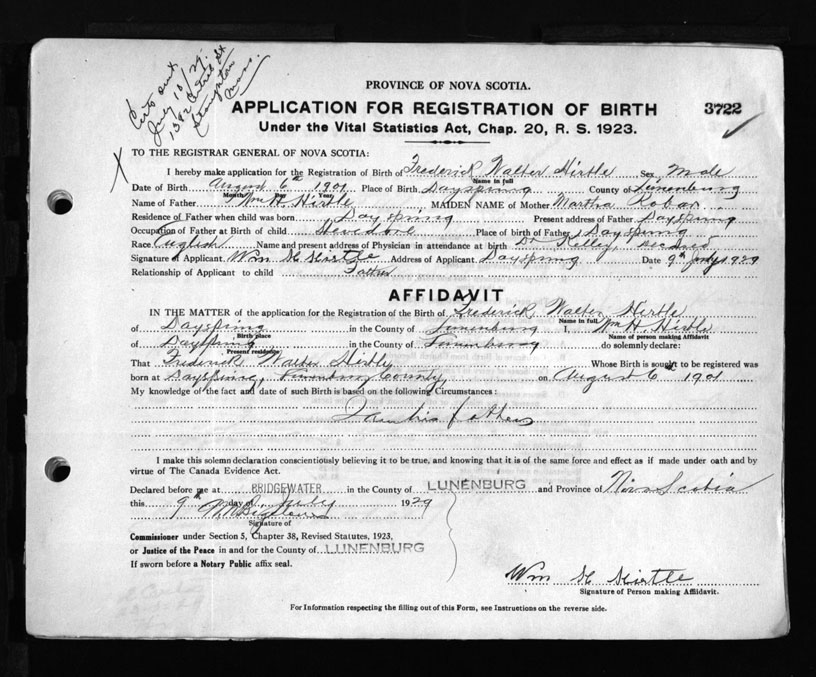 Certs sent
July 13/29.
St
Stoughton
Mass.
PROVINCE OF NOVA SCOTIA.
APPLICATION FOR REGISTRATION OF BIRTH 3722
Under the Vital Statistics Act, Chap. 20, R. S. 1923.
TO THE REGISTRAR GENERAL OF NOVA SCOTIA:
I hereby make application for the Registration of Birth of Frederick Walter Hirtle Sex Male
Name in full
Date of Birth August 6th 1901 Place of Birth Dayspring County of Lunenburg
Month Day Year
Name of Father Wm H. Hirtle MAIDEN NAME of Mother Martha Robar
Residence of Father when child was born Dayspring Present address of Father Dayspring
Occupation of Father at Birth of child Stevedore Place of Birth of Father Dayspring
Race English Name and present address of Physician in attendance at birth Dr Kelley, deceased
Signature of Applicant Wm H Hirtle Address of Applicant Dayspring Date 9th July 1929
Relationship of Applicant to child Father
AFFIDAVIT
IN THE MATTER of the application for the Registration of the Birth of Frederick Walter Hirtle
Name in full
of Dayspring in the County of Lunenburg I, Wm H. Hirtle
Birth place Name of person making Affidavit
of Dayspring in the County of Lunenburg do solemnly declare:
Present residence
That Frederick Walter Hirtle Whose Birth is sought to be registered was
born at Dayspring, Lunenburg County on August 6th 1901
My knowledge of the fact and date of such Birth is based on the following Circumstances:
I am his father
I make this solemn declaration conscientiously believing it to be true, and knowing that it is of the same force and effect as if made under oath and by
virtue of The Canada Evidence Act.
Declared before me at BRIDGEWATER in the County of LUNENBURG and Province of Nova Scotia
this 9th day of July 1929
Signature of
Commissioner under Section 5, Chapter 38, Revised Statutes, 1923,
or Justice of the Peace in and for the County of LUNENBURG
If sworn before a Notary Public affix seal.
Wm H Hirtle
Signature of Person making Affidavit.
For Information respecting the filling out of this Form, see Instructions on the reverse side.